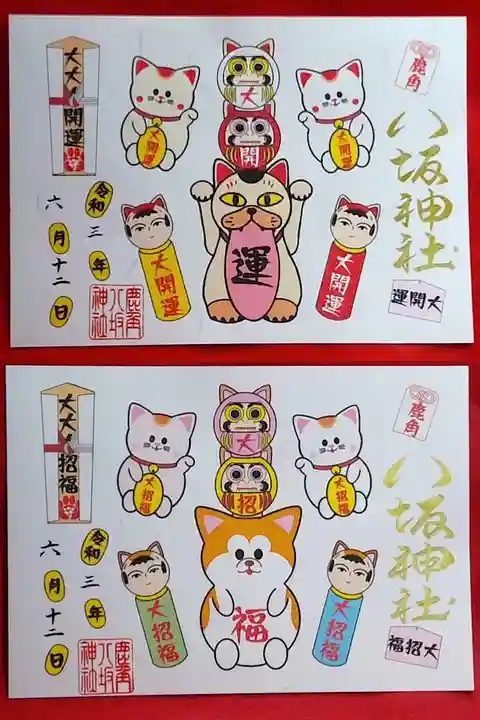 鹿角
八坂神社
大開運
大
開
運
大開運
大開運
大開運
大開運
開運
令和三年
六月十二日
鹿角
八坂
神社
鹿角
八坂神社
大招福
大
招
福
大招福
大招福
大招福
大招福
招福
令和三年
六月十二日
鹿角
八坂
神社